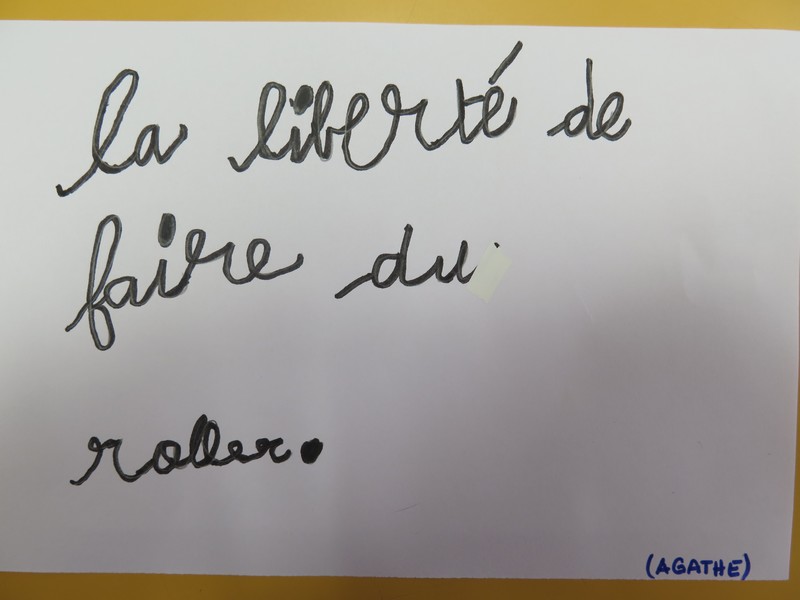 la liberté de
faire du
roller.
(AGATHE)